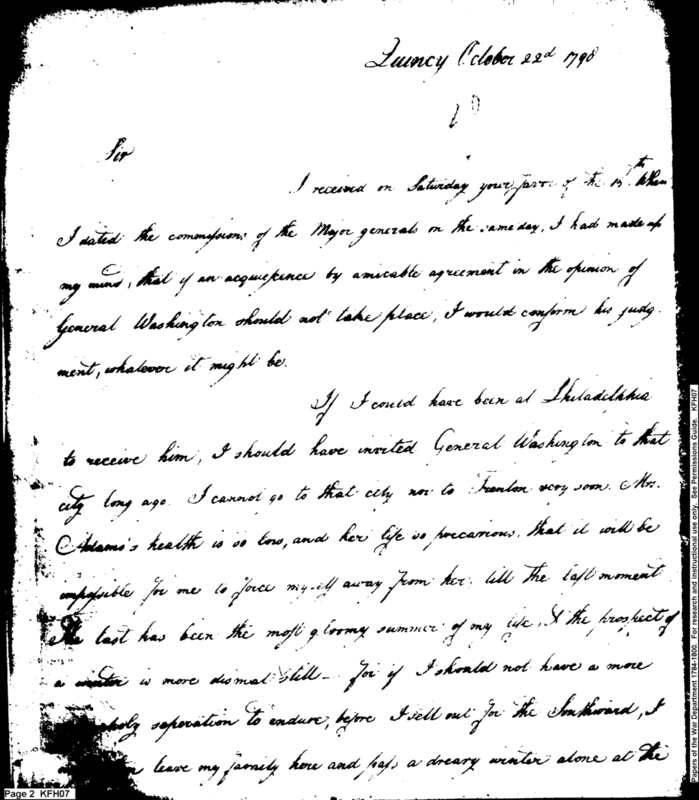 Quincy October 22d 1798
Sir
I received on Saturday your favor of the 15th. When
I dated the commissions of the Major generals on the same day, I had made up
my mind, that if an acquiescence by amicable agreement in the opinion of
General Washington should not take place, I would confirm his judg
ment, whatever it might be.
If I could have been at Philadelphia
to receive him, I should have invited General Washington to that
city long ago. I cannot go to that city nor to Trenton very soon. Mrs.
Adams's health is so low, and her life so precarious, that it will be
impossible for me to force myself away from her till the last moment
The last has been the most gloomy summer of my life, & the prospect of
a winter is more dismal still — for if I should not have a more
separation to endure, before I sett out for the Southward, I
leave my family here and pass a dreary winter alone at the
Page 2 KFH07
Papers of the War Department 1784-1800. For research and instructional use only, see Permissions Guide. KFH07